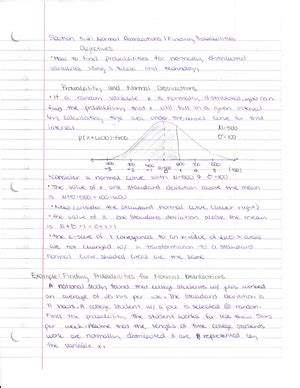 Section 5.2: Normal Distributions: Finding Probabilities
Objectives
• How to find probabilities for normally distributed
variables using a table and technology
Probability and Normal Distributions
• If a random variable x is normally distributed, you can
find the probability that x will fall in a given interval
by calculating the area under the normal curve for that
interval
μ=500
σ=100
P(x<600)=
• Consider a normal curve with μ=500 & σ=100
• The value of x one standard deviation above the mean
is μ+σ=500+100=600
• Now consider the standard normal curve
• The value of z one standard deviation above the mean
is μ+σ=0+1=1
• The z-score of 1 corresponds to an x-value of 600 & areas
are not changed w/ a transformation to a standard
normal curve, shaded areas are the same
Example: Finding Probabilities for Normal Distributions
A national study found that college students w/ jobs worked
an average of 25 hrs per wk. The standard deviation is
11 hours. A college student w/ a job is selected @ random.
Find the probability the student works for less than 5hrs
per week. Assume that the lengths of time college students
work are normally distributed & are represented by
the variable x.